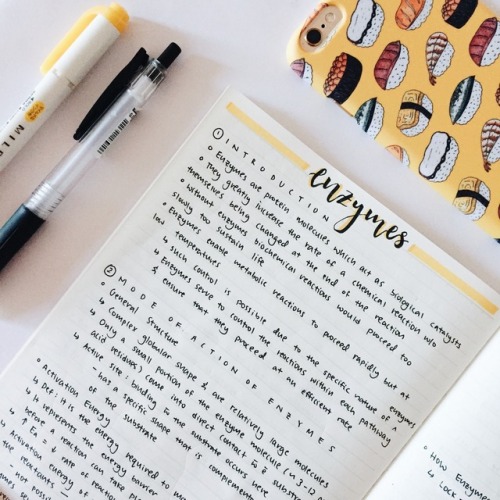 enzymes
① INTRODUCTION
◦ Enzymes are protein molecules which act as biological catalysts
◦ They greatly increase the rate of a chemical reaction w/o
themselves being changed at the end of the reaction
◦ without enzymes biochemical reactions would proceed too
slowly to sustain life
◦ Enzymes enable metabolic reactions to proceed rapidly but at
low temperatures
↳ such control is possible due to the specific nature of enzymes
↳ Enzymes serve to control the reactions within each pathway
& ensure that they proceed at an efficient rate
② MODE OF ACTION OF ENZYMES
◦ General structure
↳ Complex globular shape & are relatively large molecules
↳ Only a small portion of the enzyme molecule (~3-
acid residues) come into direct contact substrate
↳ Active site: binding to the substrate occurs here
- has a specific shape that is complementary
of the substrate
◦ Activation Energy
↳ Def: it is the energy required to
↳ It represents the energy barrier
before a reaction can take place
↳ ↑ Ea = ↓ rate of reaction
↳ Activation energy of
reactants
◦ HOW Enzymes
↳ Loc
MIL